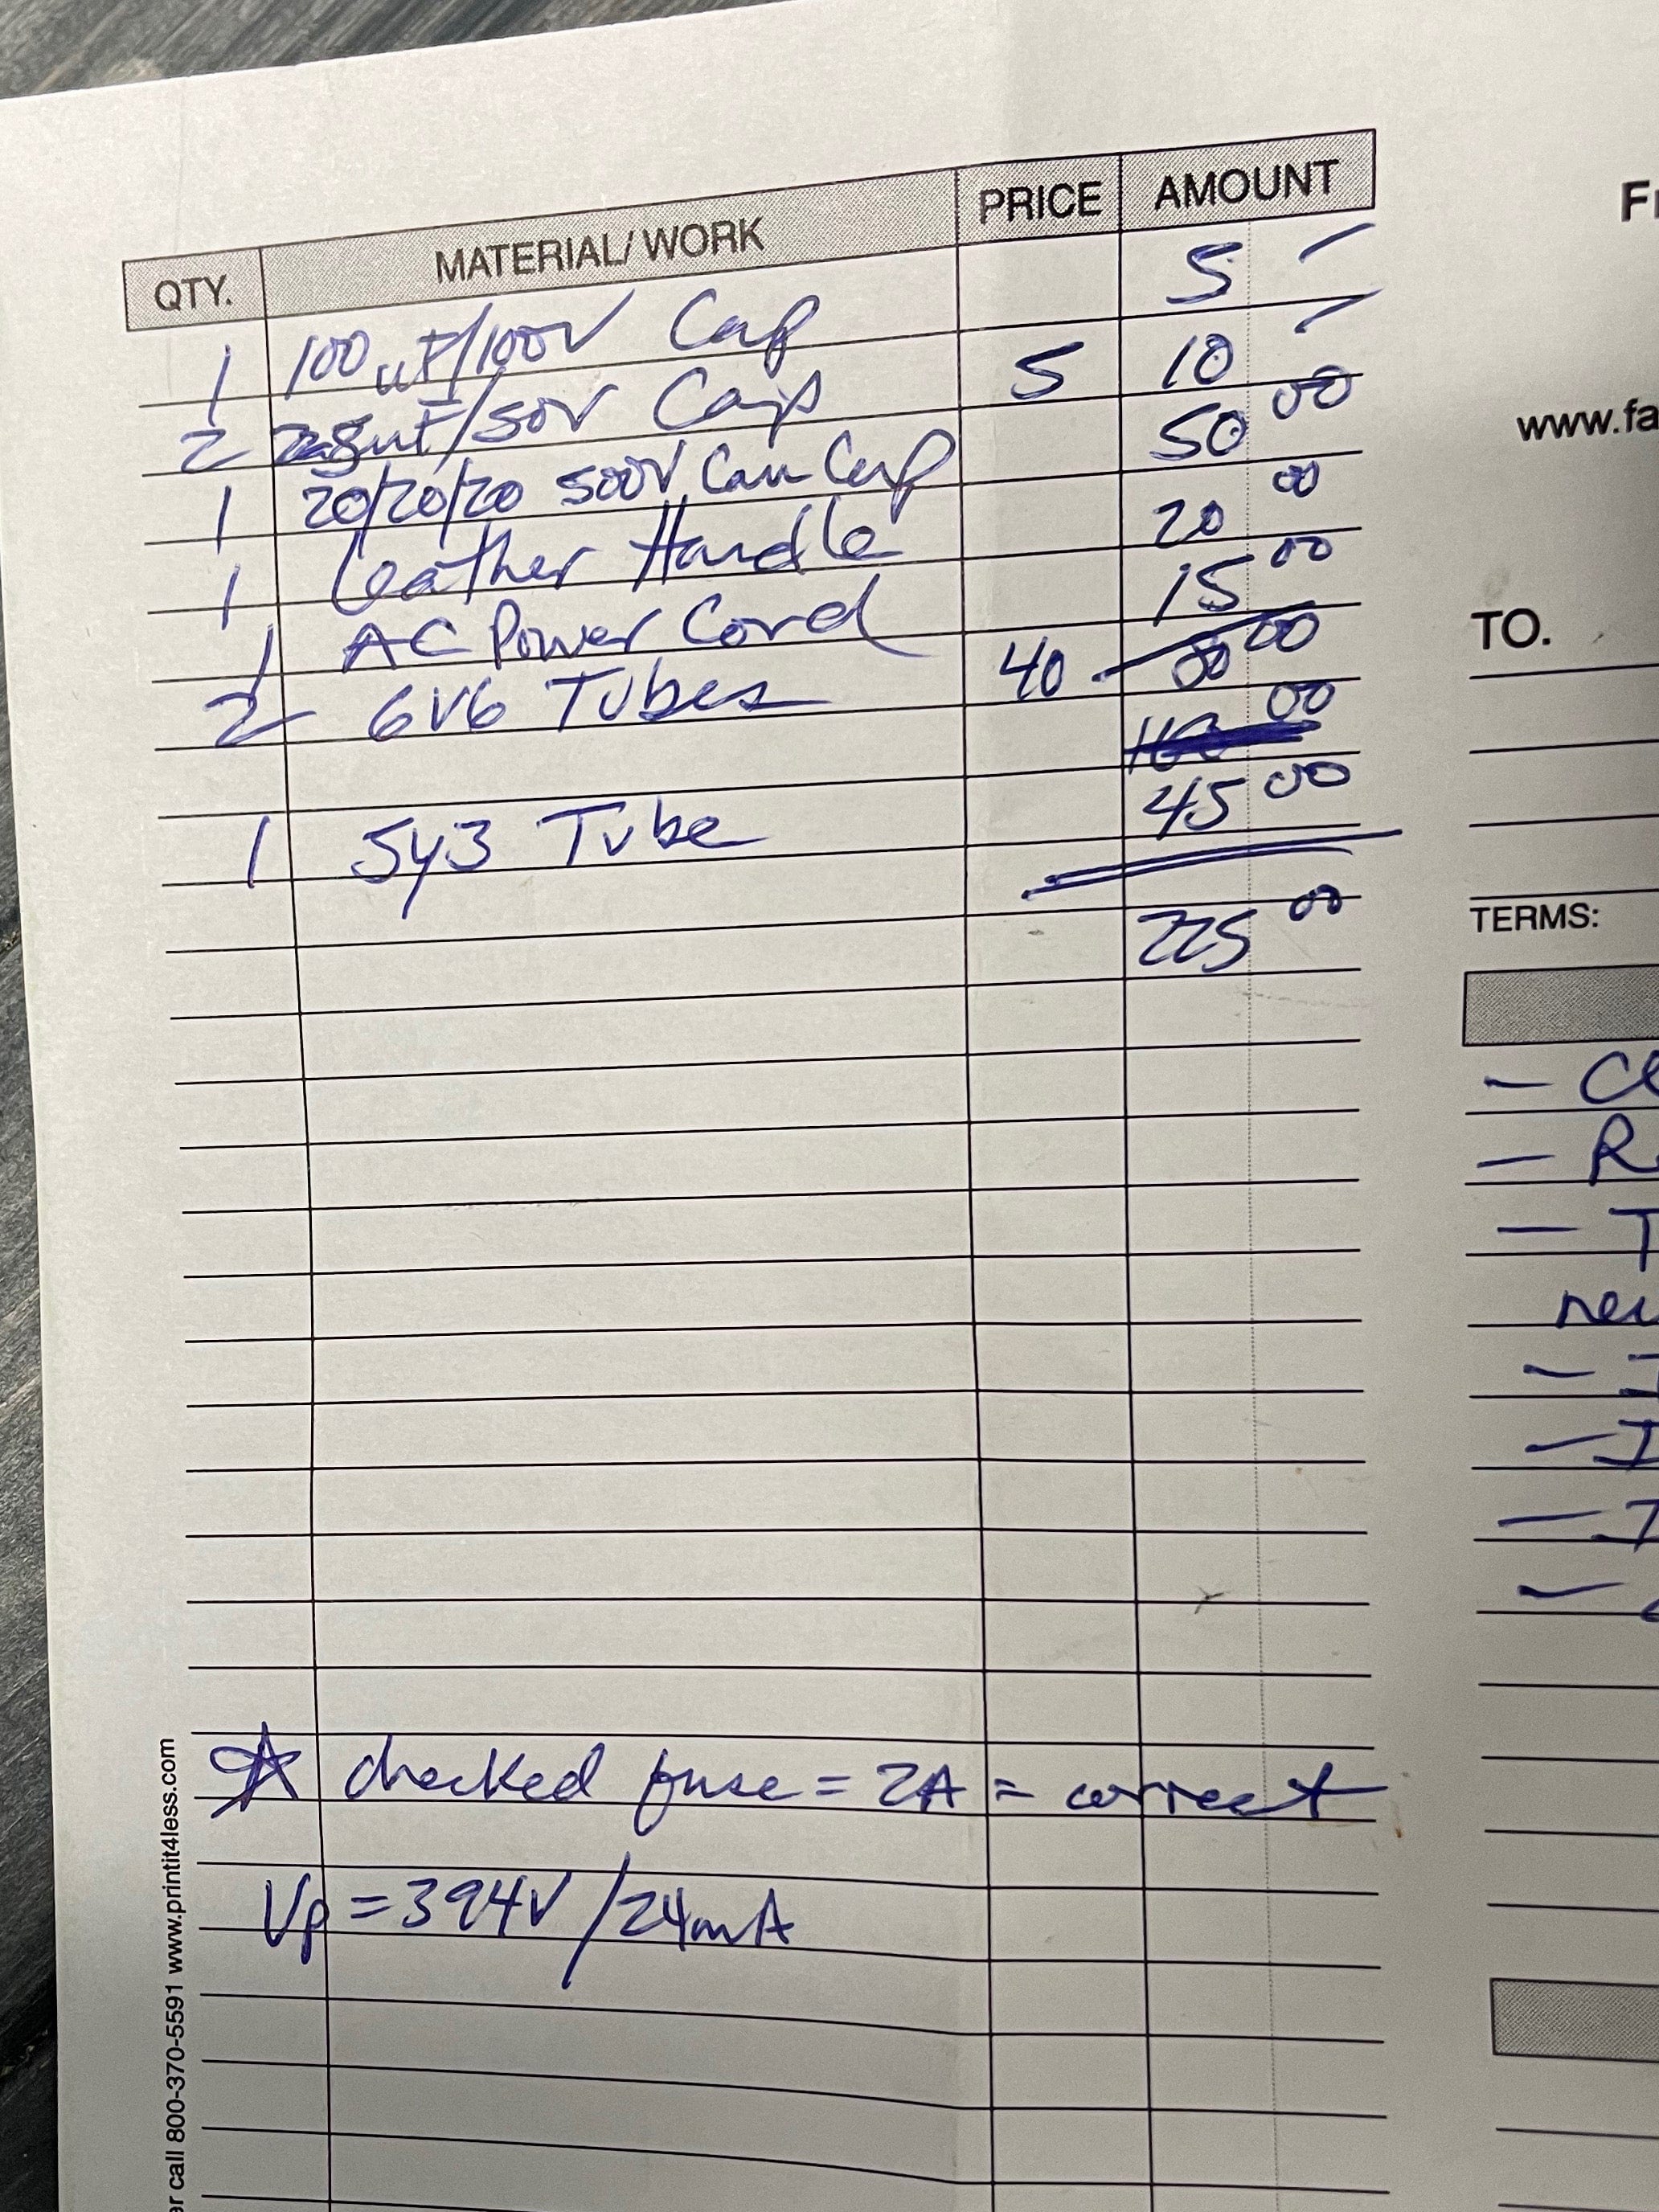 QTY. MATERIAL/WORK PRICE AMOUNT
1 100uF/100V Cap 5 –
2 uF/50V Caps 5 10 –
1 20/20/20 500V Can Cap 50 00
1 Leather Handle 20 00
1 AC Power Cord 15 00
2 6V6 Tubes 40 80 00
00
1 5Y3 Tube 45 00
225 00
☆ checked fuse = 2A = correct
Vp = 394V / 24mA
call 800-370-5591 www.printit4less.com
www.fa
TO.
TERMS:
– Cl
– R
– T
– I